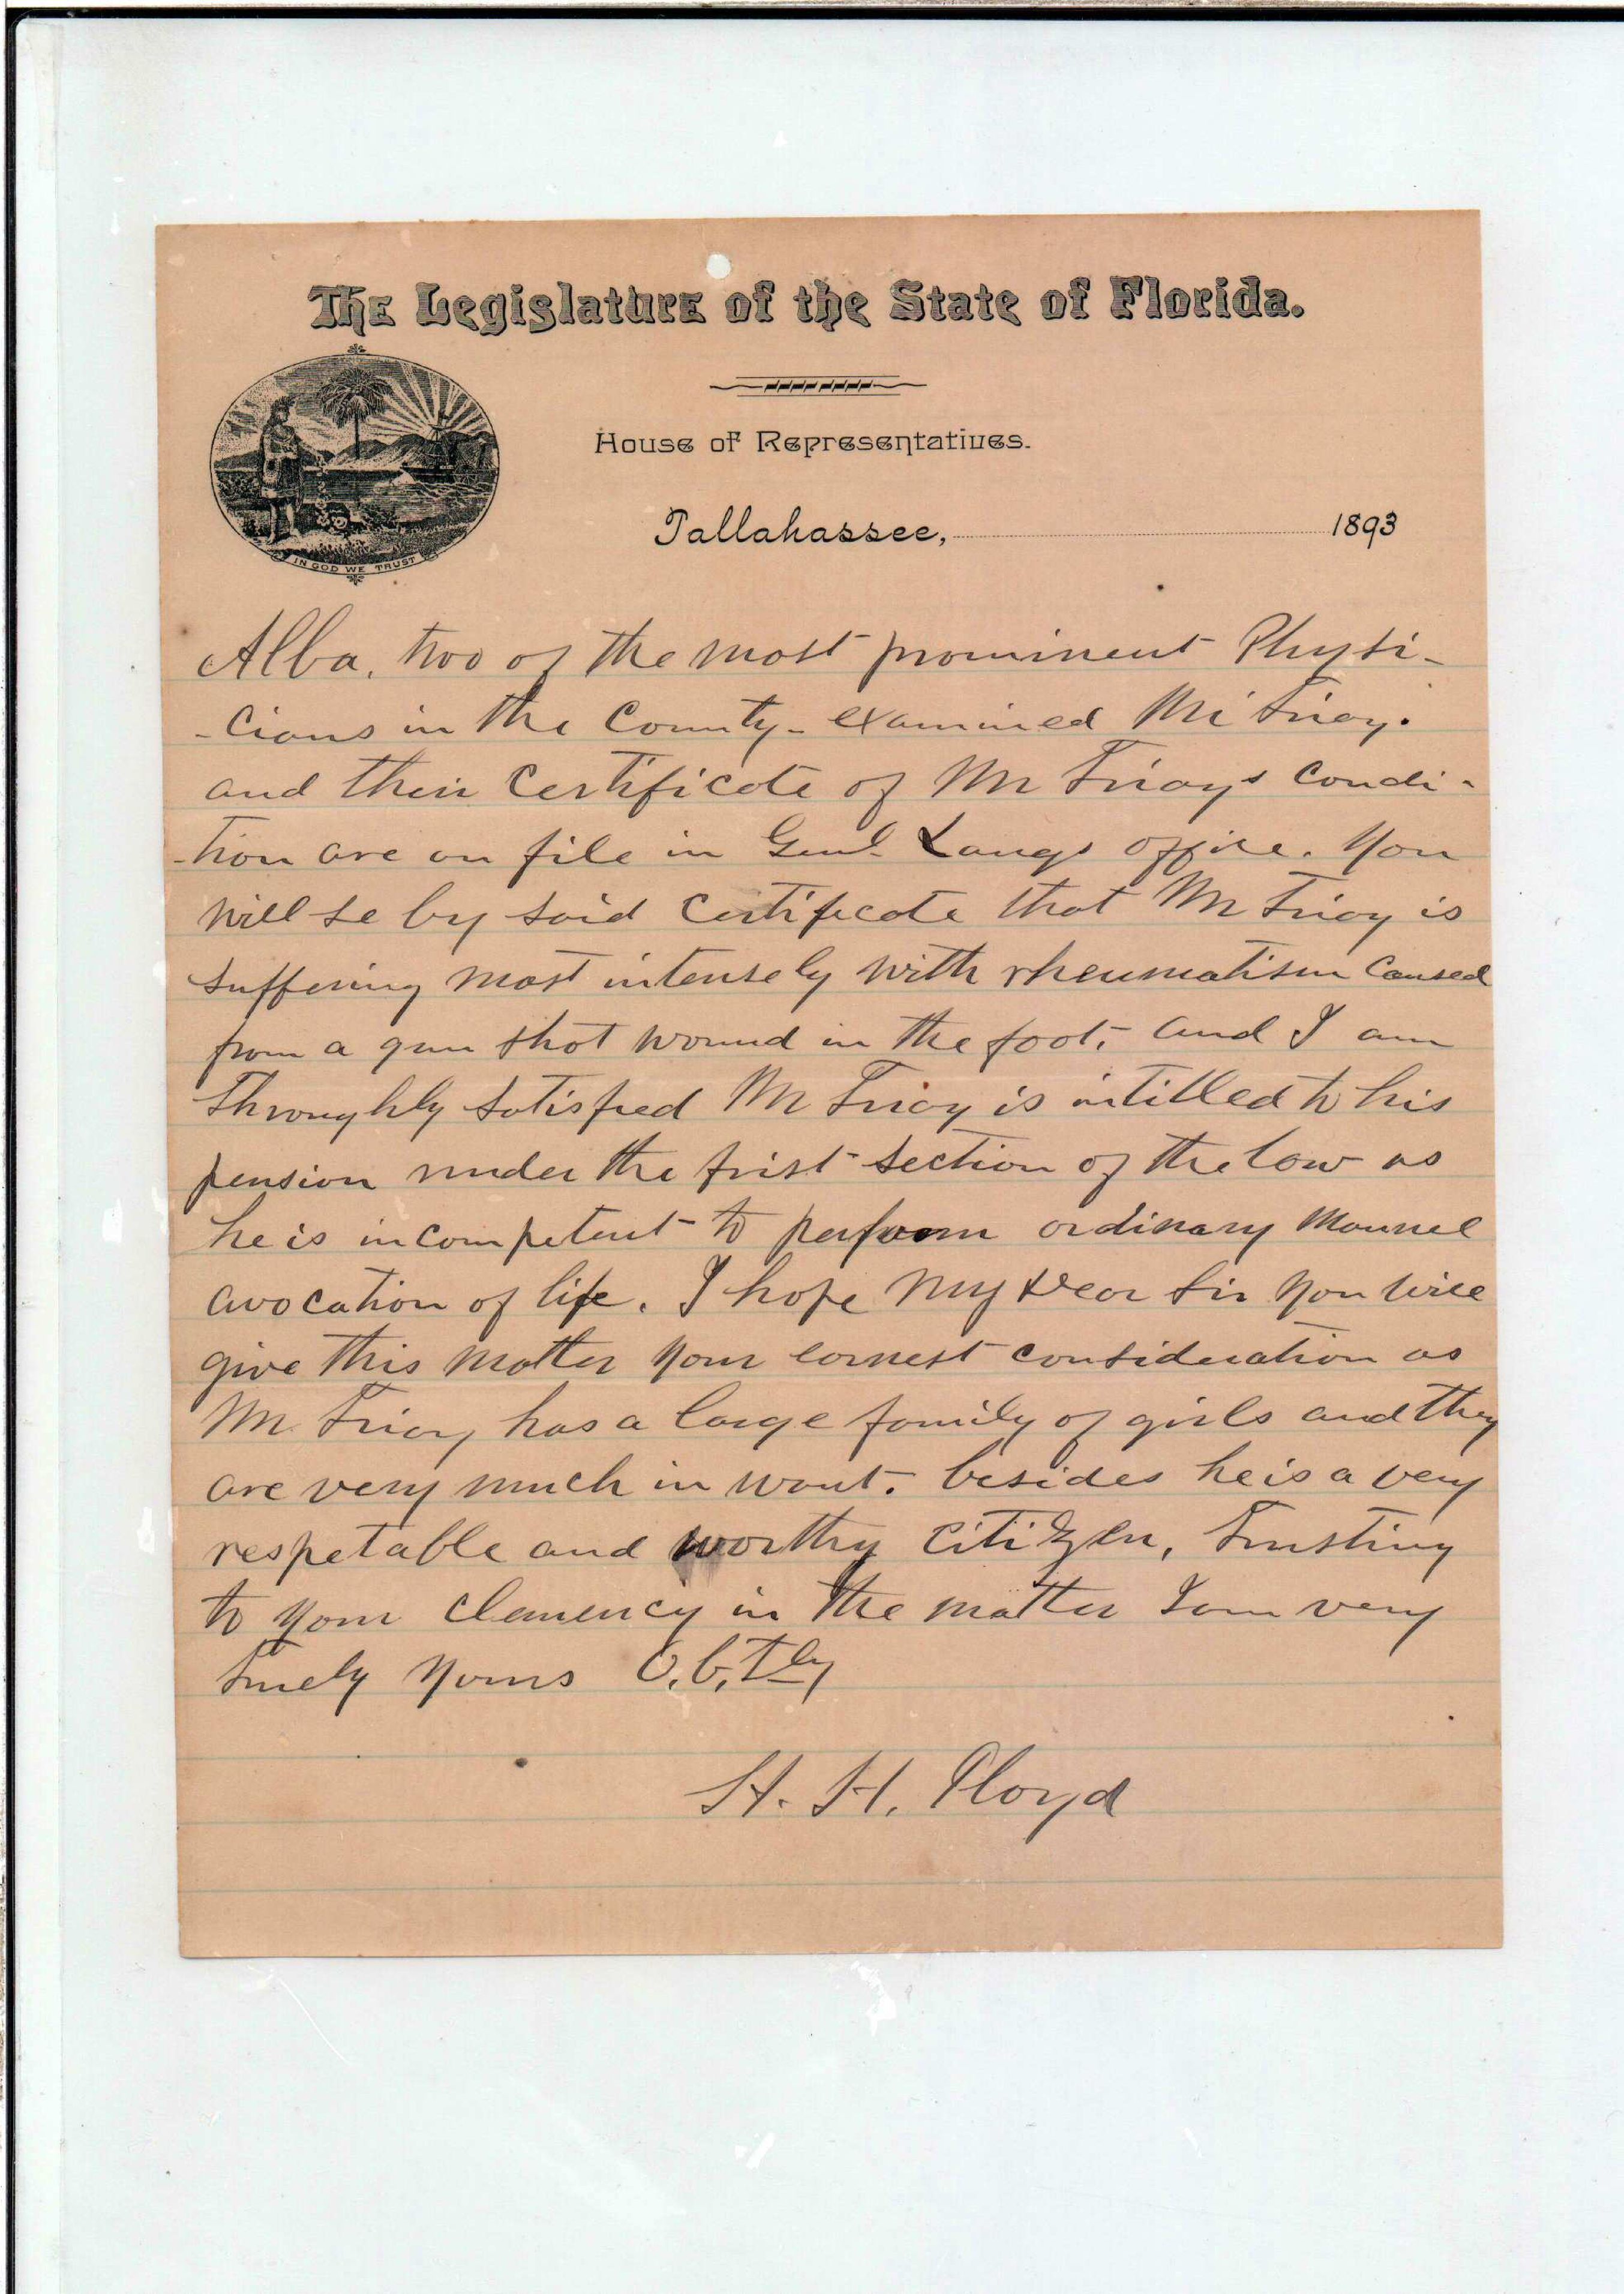 The Legislature of the State of Florida.
House of Representatives.
Tallahassee, 1893
IN GOD WE TRUST
Alba, two of the most prominent Physi-
-cians in the County- examined Mr Triay.
and their Certificate of Mr Triays Condi-
-tion are on file in Genl. Langs office. You
will se by said Certificate that Mr Triay is
suffering most intensely with rheumatism Caused
from a gun shot wound in the foot, and I am
Throughly satisfied Mr Triay is intitled to his
pension under the first section of the law as
he is incompetent to perform ordinary Mannel
avocation of life. I hope My Dear Sir You will
give this matter Your earnest consideration as
Mr. Triay has a large family of girls and they
are very much in want. besides he is a very
respetable and worthy Citizen, Trusting
to Your Clemency in the matter I am very
Truely Yours O.b.tly
H. H. Floyd